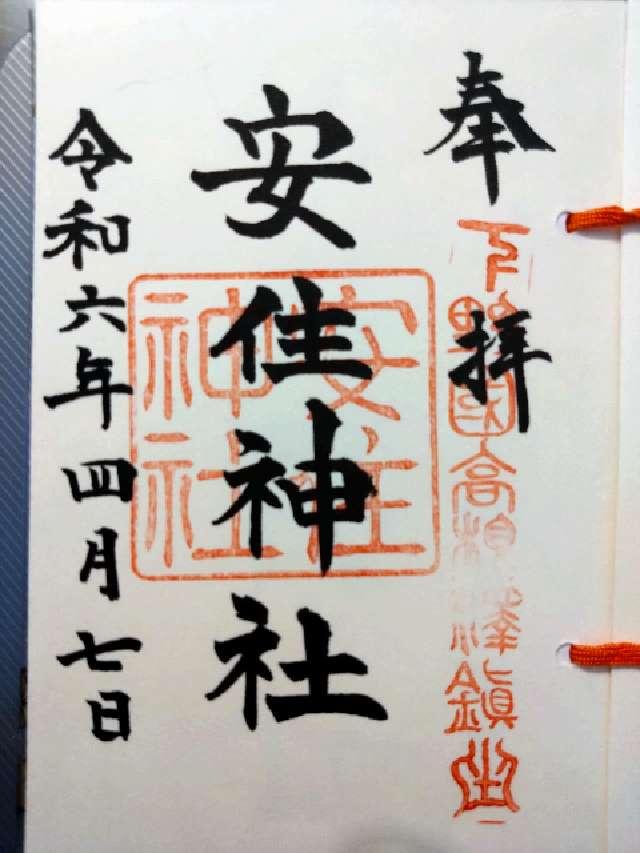 奉拝
下野國高根澤鎮座
安住神社
安住神社
令和六年四月七日